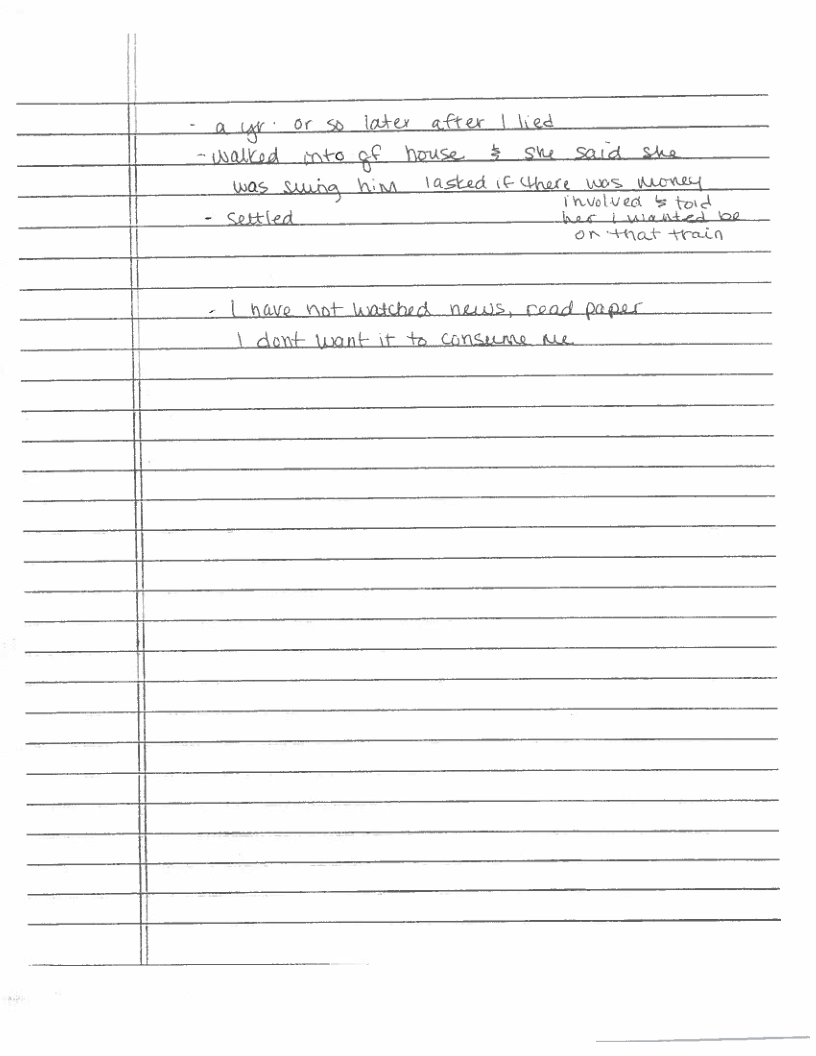 - a yr. or so later after I lied
- walked into gf house & she said she
was suing him I asked if there was money
involved & told
- settled her i wanted be
on that train
- I have not watched news, read paper
I dont want it to consume me